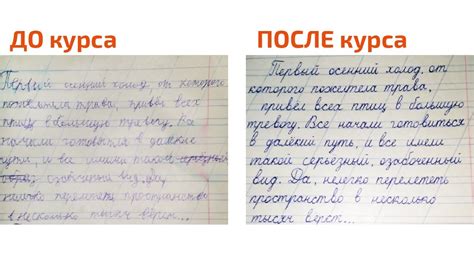 ДО курса
Первый осенний холод, от которого
пожелтела трава, привёл всех
птиц в большую тревогу. Все
начали готовиться в далекий
путь, и все имели такой серьёзный
озабоченный вид. Да,
нелегко перелететь пространство
в несколько тысяч вёрст...
ПОСЛЕ курса
Первый осенний холод, от
которого пожелтела трава,
привёл всех птиц в большую
тревогу. Все начали готовиться
в далёкий путь, и все имели
такой серьёзный, озабоченный
вид. Да, нелегко перелететь
пространство в несколько
тысяч вёрст...